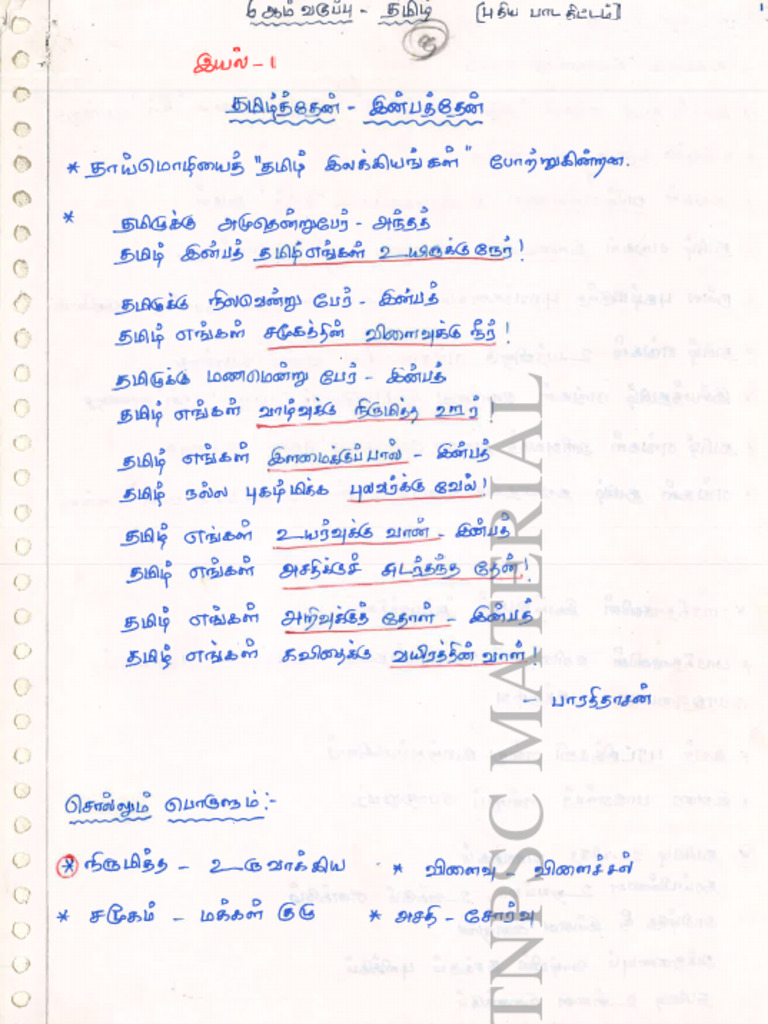 6 ஆம் வகுப்பு - தமிழ் [புதிய பாடதிட்டம்]
இயல் - 1
தமிழ்த்தேன் - இன்பத்தேன்
* தாய்மொழியைத் "தமிழ் இலக்கியங்கள்" போற்றுகின்றன.
* தமிழுக்கு அமுதென்றுபேர் - அந்தத்
தமிழ் இன்பத் தமிழ்எங்கள் உயிருக்கு நேர்!
தமிழுக்கு நிலவென்று பேர் - இன்பத்
தமிழ் எங்கள் சமூகத்தின் விளைவுக்கு நீர்!
தமிழுக்கு மணமென்று பேர் - இன்பத்
தமிழ் எங்கள் வாழ்வுக்கு நிருமித்த ஊர்!
தமிழ் எங்கள் இளமைக்குப் பால் - இன்பத்
தமிழ் நல்ல புகழ்மிக்க புலவர்க்கு வேல்!
தமிழ் எங்கள் உயர்வுக்கு வான் - இன்பத்
தமிழ் எங்கள் அசதிக்குச் சுடர்தந்த தேன்!
தமிழ் எங்கள் அறிவுக்குத் தோள் - இன்பத்
தமிழ் எங்கள் கவிதைக்கு வயிரத்தின் வாள்!
- பாரதிதாசன்
சொல்லும் பொருளும் :-
* நிருமித்த - உருவாக்கிய * விளைவு - விளைச்சல்
* சமூகம் - மக்கள் குழு * அசதி - சோர்வு
TNPSC MATERIAL